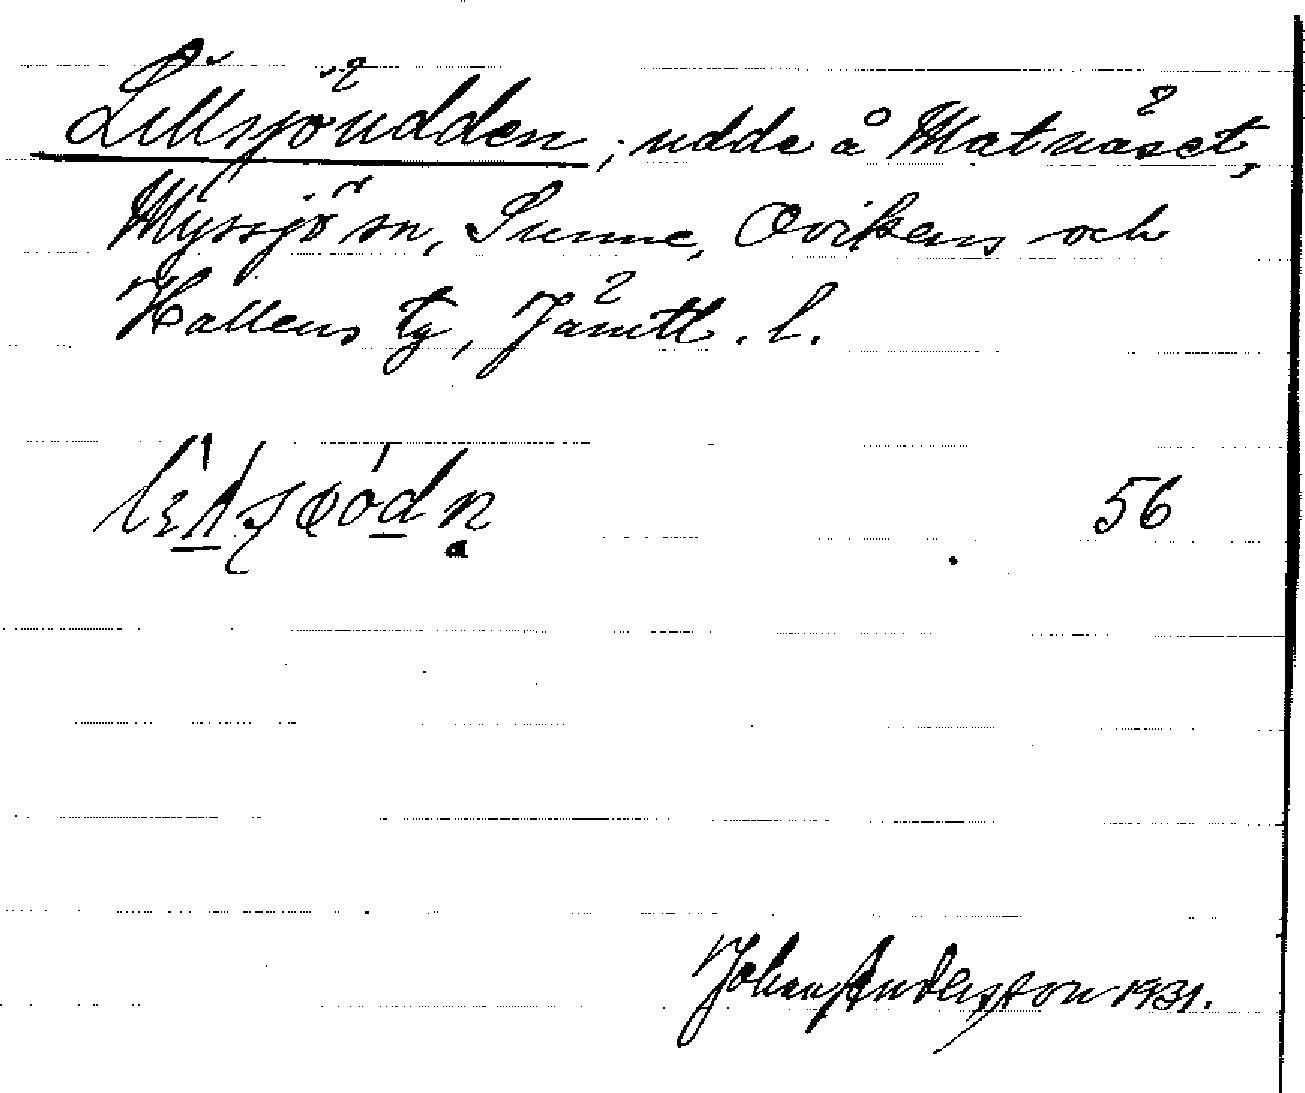 Lillsjöudden, udde å Matnäset,
Myssjö sn, Sunne, Ovikens och
Hallens tg, Jämtl. l.
56
Johan Andersson 1931.